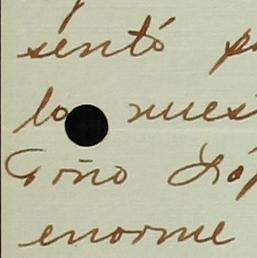 sentó
lo nues
Toño Lóp
enorme